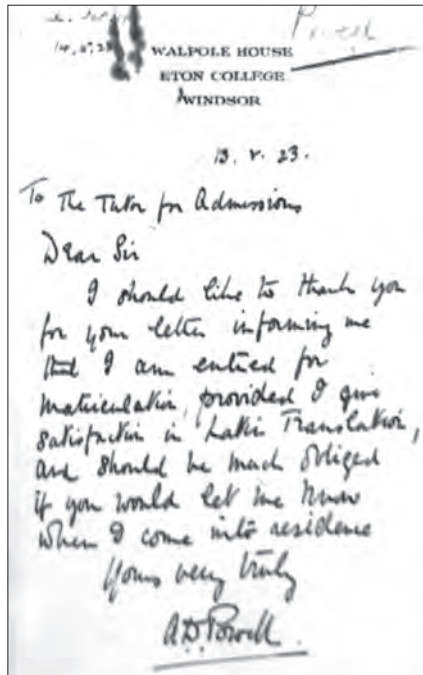 14.5.23
Powell
WALPOLE HOUSE
ETON COLLEGE
WINDSOR
13. V. 23.
To The Tutor for Admissions
Dear Sir
I should like to thank you
for your letter informing me
that I am entered for
matriculation, provided I give
satisfaction in Latin Translation,
and should be much obliged
if you would let me know
when I come into residence
Yours very truly
A.D. Powell